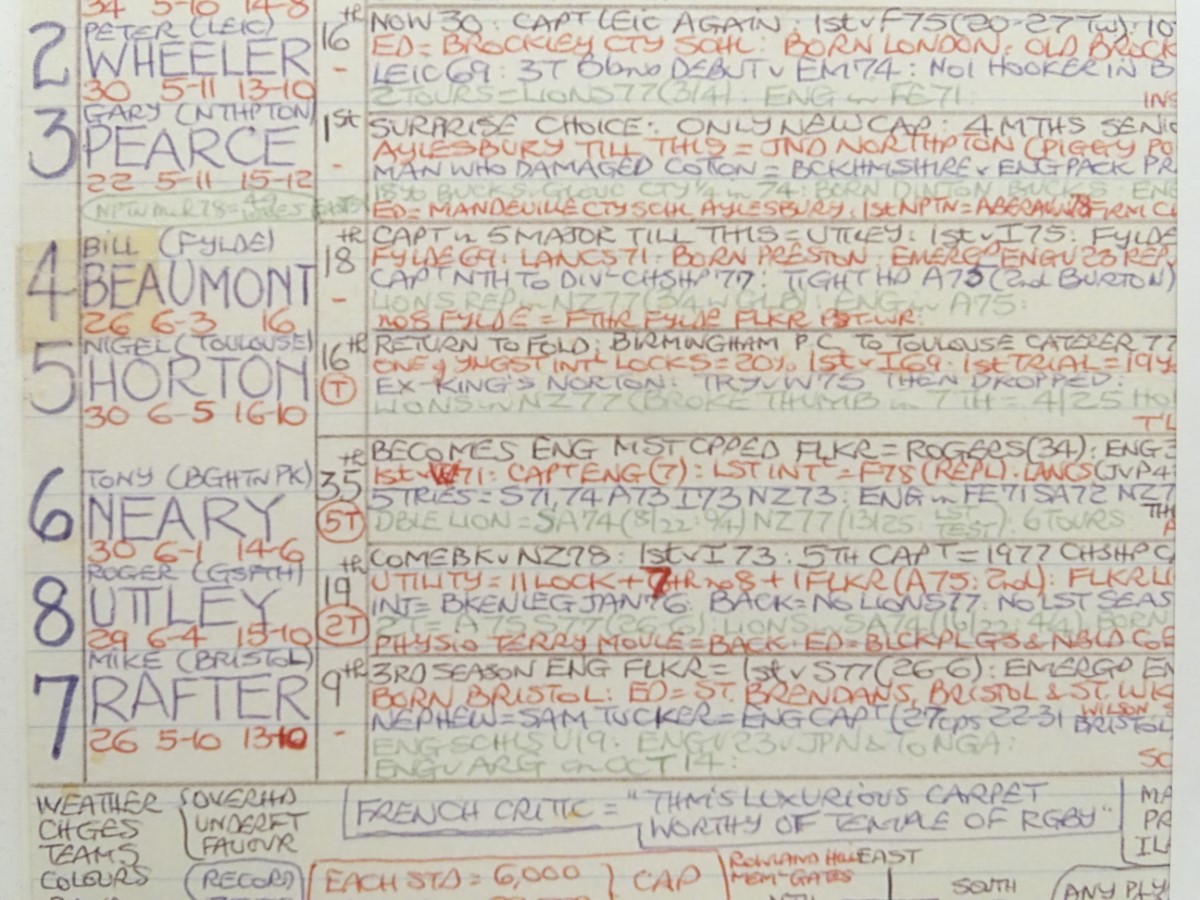 34 5-10 14-8
2 PETER (LEIC) 16TH NOW 30: CAPT LEIC AGAIN: 1ST v F75 (20-27 TW): 10
WHEELER ED= BROCKLEY CTY SCHL: BORN LONDON: OLD BROCK
- LEIC 69: 3T DEBUT v EM74: NO1 HOOKER IN B
30 5-11 13-10 2 TOURS=LIONS 77 (3/4). ENG in FE71
INS
3 GARY (NTHPTON) 1ST SURPRISE CHOICE: ONLY NEW CAP: 4 MTHS SENIO
PEARCE AYLESBURY TILL THIS = JND NORTHPTON (PIGGY PO
- MAN WHO DAMAGED COTTON = BCKHMSHIRE v ENG PACK PR
22 5-11 15-12 BUCKS. GLOUC CTY in 74: BORN DINTON BUCKS: ENG
ED= MANDEVILLE CTY SCHL AYLESBURY. 1ST NPTN=ABERAVN 78 FIRM C
4 BILL (FYLDE) 18TH CAPT in 5 MAJOR TILL THIS = UTTLEY: 1ST v I75: FYLDE
BEAUMONT FYLDE 69: LANCS 71: BORN PRESTON. EMERGD ENG U23 REP
- CAPT NTH TO DIV CHSHP '77: TIGHT HD A75 (2nd BURTON)
26 6-3 16 LIONS REP in NZ77 (3/4 w GLB): ENG in A75:
NO8 FYLDE = FTHR FYLDE FLKR PST WR:
5 NIGEL (TOULOUSE) 16TH RETURN TO FOLD: BIRMINGHAM P.C TO TOULOUSE CATERER 77
HORTON (T) ONE of YNGST INT LOCKS = 20½. 1ST v I69: 1ST TRIAL = 19y
EX-KING'S NORTON: TRY v W75 THEN DROPPED:
30 6-5 16-10 LIONS in NZ77 (BROKE THUMB in 7TH = 4/25 HO
T'L
6 TONY (BGHTN PK) 35TH BECOMES ENG MST CPPED FLKR = ROGERS (34): ENG 3
NEARY 1ST v W71: CAPT ENG (7): LST INT = F78 (REPL). LANCS (JVP 4
(5T) 5 TRIES = S71, 74 A73 I73 NZ73: ENG in FE71 SA72 NZ7
30 6-1 14-6 DBLE LION = SA74 (8/22: 9/4) NZ77 (13/25: 1ST TEST). 6 TOURS
8 ROGER (GSFTH) 19TH COMEBK v NZ78: 1ST v I 73: 5TH CAPT = 1977 CHSHP C
UTTLEY UTILITY = 11 LOCK + 7 no8 + 1 FLKR (A75: 2nd): FLKR LI
(2T) INT= BKEN LEG JAN 76: BACK=NO LIONS 77. NO LST SEAS
29 6-4 15-10 2T= A75 S77 (26-6): LIONS in SA74 (16/22: 4/4). BORN
PHYSIO TERRY MOULE = BACK. ED= BLCKPL GS & NBLD COE
7 MIKE (BRISTOL) 9TH 3RD SEASON ENG FLKR = 1ST v S77 (26-6): EMERGD EN
RAFTER BORN BRISTOL: ED= ST. BRENDANS, BRISTOL & ST. LUK
- NEPHEW=SAM TUCKER=ENG CAPT (27cps 22-31 WILSON S BRISTOL
26 5-10 13-10 ENG SCHLS U19: ENG U23 v JPN & TONGA:
ENG v ARG on OCT 14: SC
WEATHER
CHGES
TEAMS
COLOURS
OVERHD
UNDERFT
FAVOUR
FRENCH CRITIC = "THM'S LUXURIOUS CARPET
WORTHY OF TEMPLE OF RGBY"
MA
PR
ILL
RECORD
EACH STD = 6,000
CAP
ROWLAND HILL
MEM-GATES
EAST
SOUTH
ANY PLY